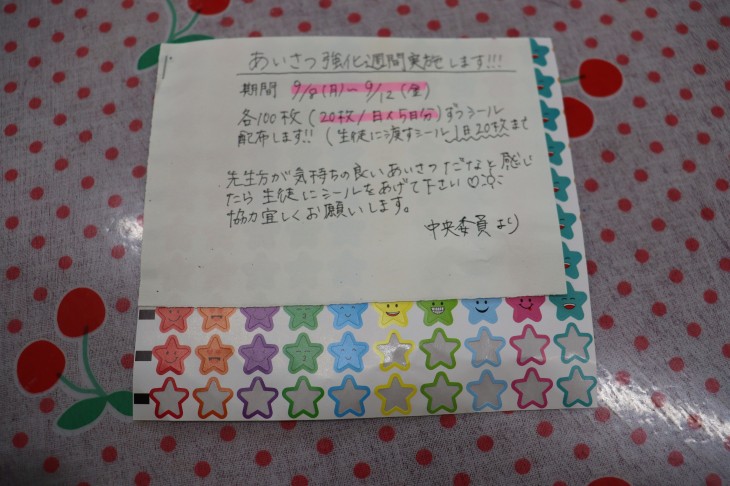 あいさつ強化週間実施します!!!
期間 9/8(月)〜9/12(金)
各100枚(20枚/日×5日分)ずつシール
配布します!!(生徒に渡すシール1日20枚まで
先生方が気持ちの良いあいさつだなと感じ
たら生徒にシールをあげて下さい♡
協力宜しくお願いします。
中央委員より